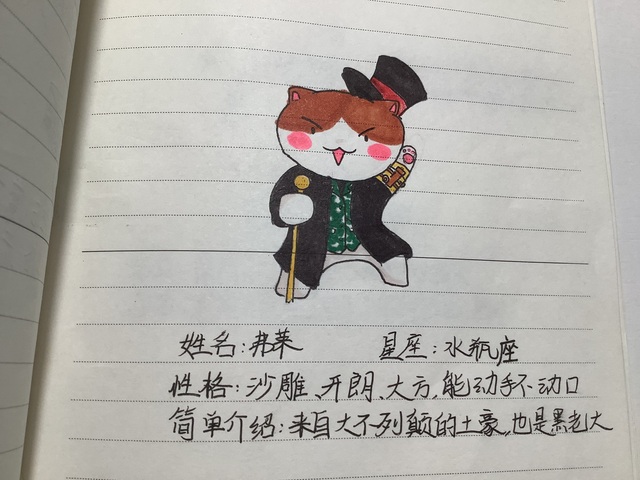 姓名：弗莱 星座：水瓶座
性格：沙雕、开朗、大方，能动手不动口
简单介绍：来自大不列颠的土豪，也是黑老大